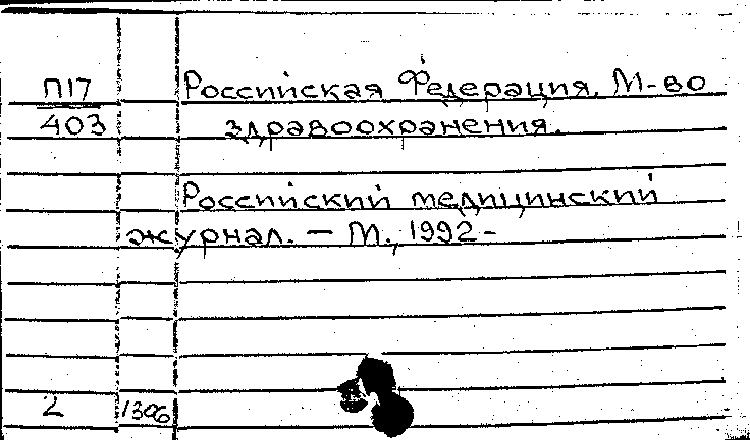 П17 Российская Федерация. М-во
403 здравоохранения.
Российский медицинский
журнал. - М., 1992-
2 1306